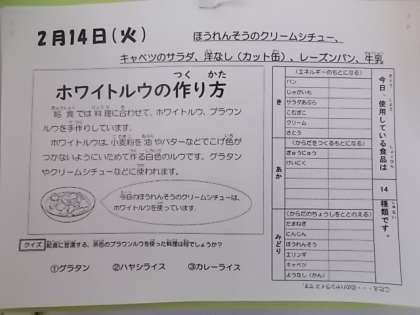 2月14日(火)
ほうれんそうのクリームシチュー、
キャベツのサラダ、洋なし(カット缶)、レーズンパン、牛乳
ホワイトルウの作り方
つく かた
給食では料理に合わせて、ホワイトルウ、ブラウン
ルウを手作りしています。
ホワイトルウは、小麦粉を油やバターなどでこげ色が
つかないようにいためて作る白色のルウです。グラタン
やクリームシチューなどに使われます。
今日のほうれんそうのクリームシチューは、
ホワイトルウを使っています。
クイズ 給食に登場する、茶色のブラウンルウを使った料理は何でしょうか?
①グラタン ②ハヤシライス ③カレーライス
今日、使用している食品は 14 種類です。
き
(エネルギーのもとになる)
パン
じゃがいも
サラダあぶら
こむぎこ
クリーム
さとう
あか
(からだをつくるもとになる)
ぎゅうにゅう
みどり
(からだのちょうしをととのえる)
たまねぎ
にんじん
ほうれんそう
エリンギ
キャベツ
ようなし(かん)